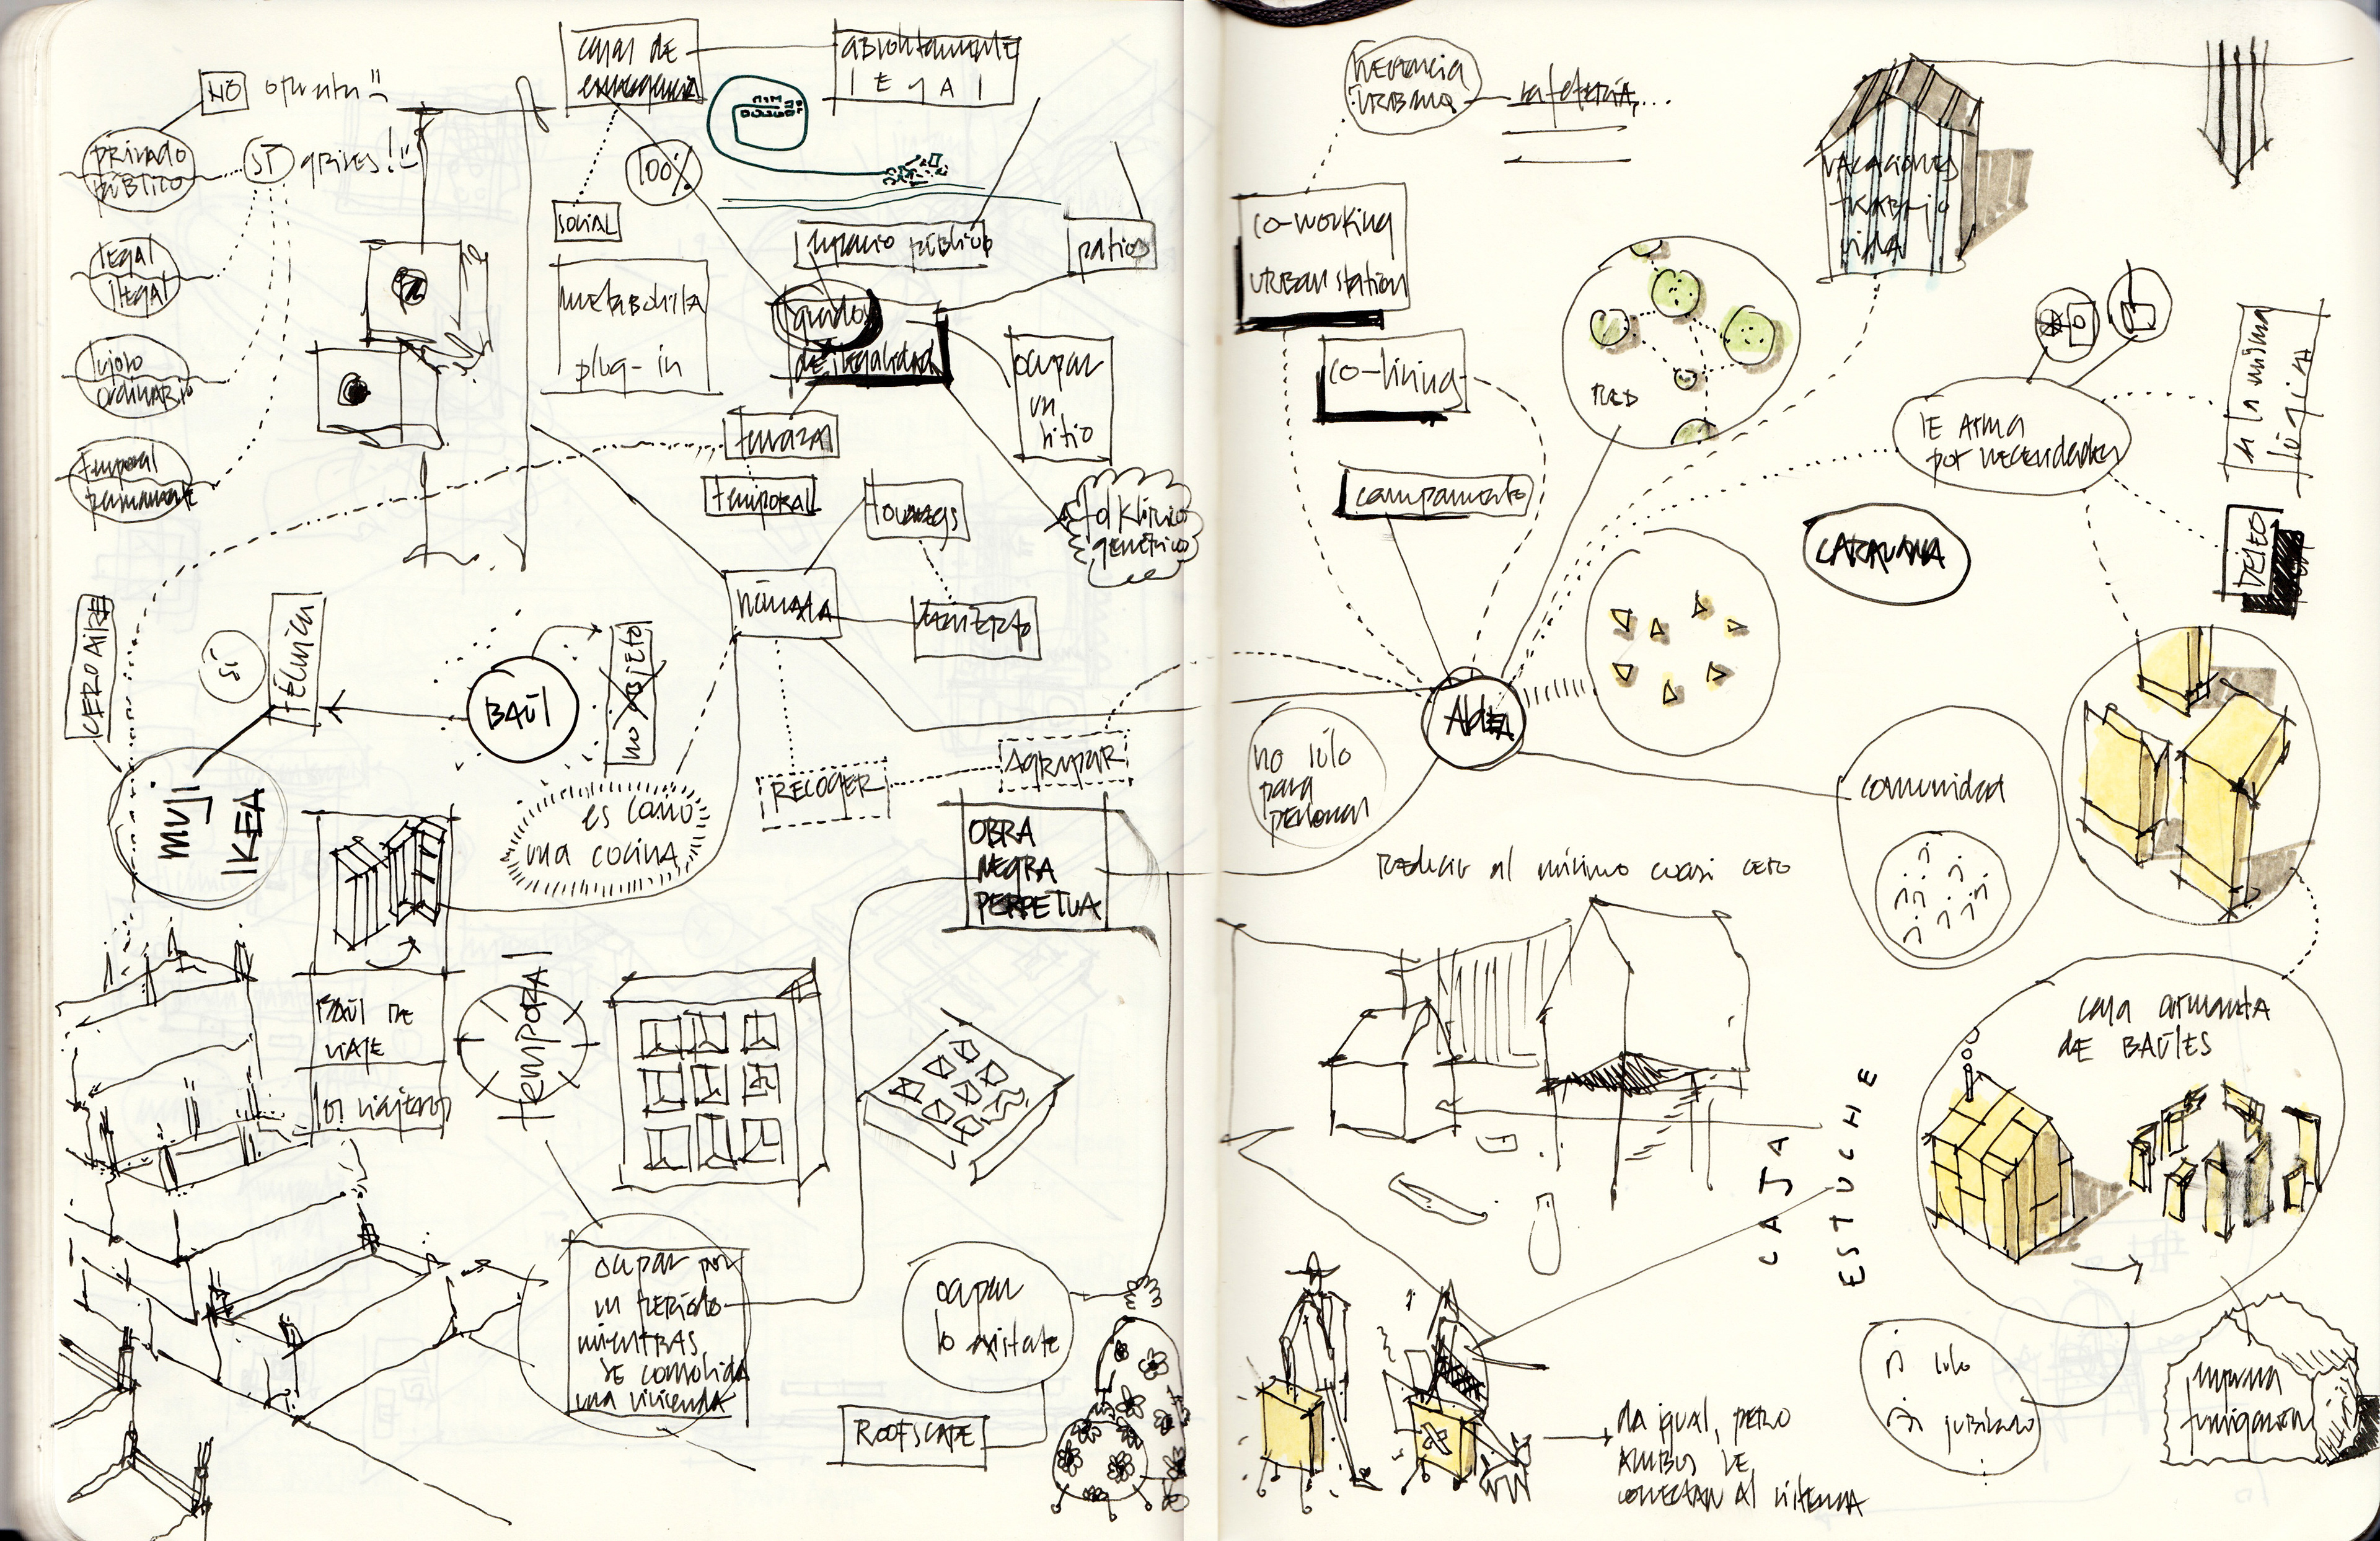 casas de
emergencia
absolutamente
legal
NO
SÍ grises!
privado
público
100%
legal
ilegal
social
espacio público
patios
metabolista
plug-in
grados
de ilegalidad
ocupar
un
sitio
lujo
ordinario
temporal
permanente
terrazas
temporal
nómada
CERO AIRE
SÍ
técnica
BAÚL
no objeto
muji
IKEA
es como
una cocina
RECOGER
Agrupar
OBRA
NEGRA
PERPETUA
BAÚL DE
VIAJE
los viajeros
temporal
ocupar por
un período
mientras
se consolida
una vivienda
ocupar
lo existente
ROOFSCAPE
herencia
urbana
cafetería,...
co-working
urban station
co-living
campamento
RED
VACACIONES
TRABAJO
VIDA
se arma
por necesidades
a la misma
lógica
CARAVANA
ALDEA
no sólo
para
personal
comunidad
reducir al mínimo cuasi cero
casa armada
DE BAÚLES
CAJA
ESTUCHE
da igual, pero
AMBOS SE
CONECTAN AL SISTEMA
si solo
si jubilado